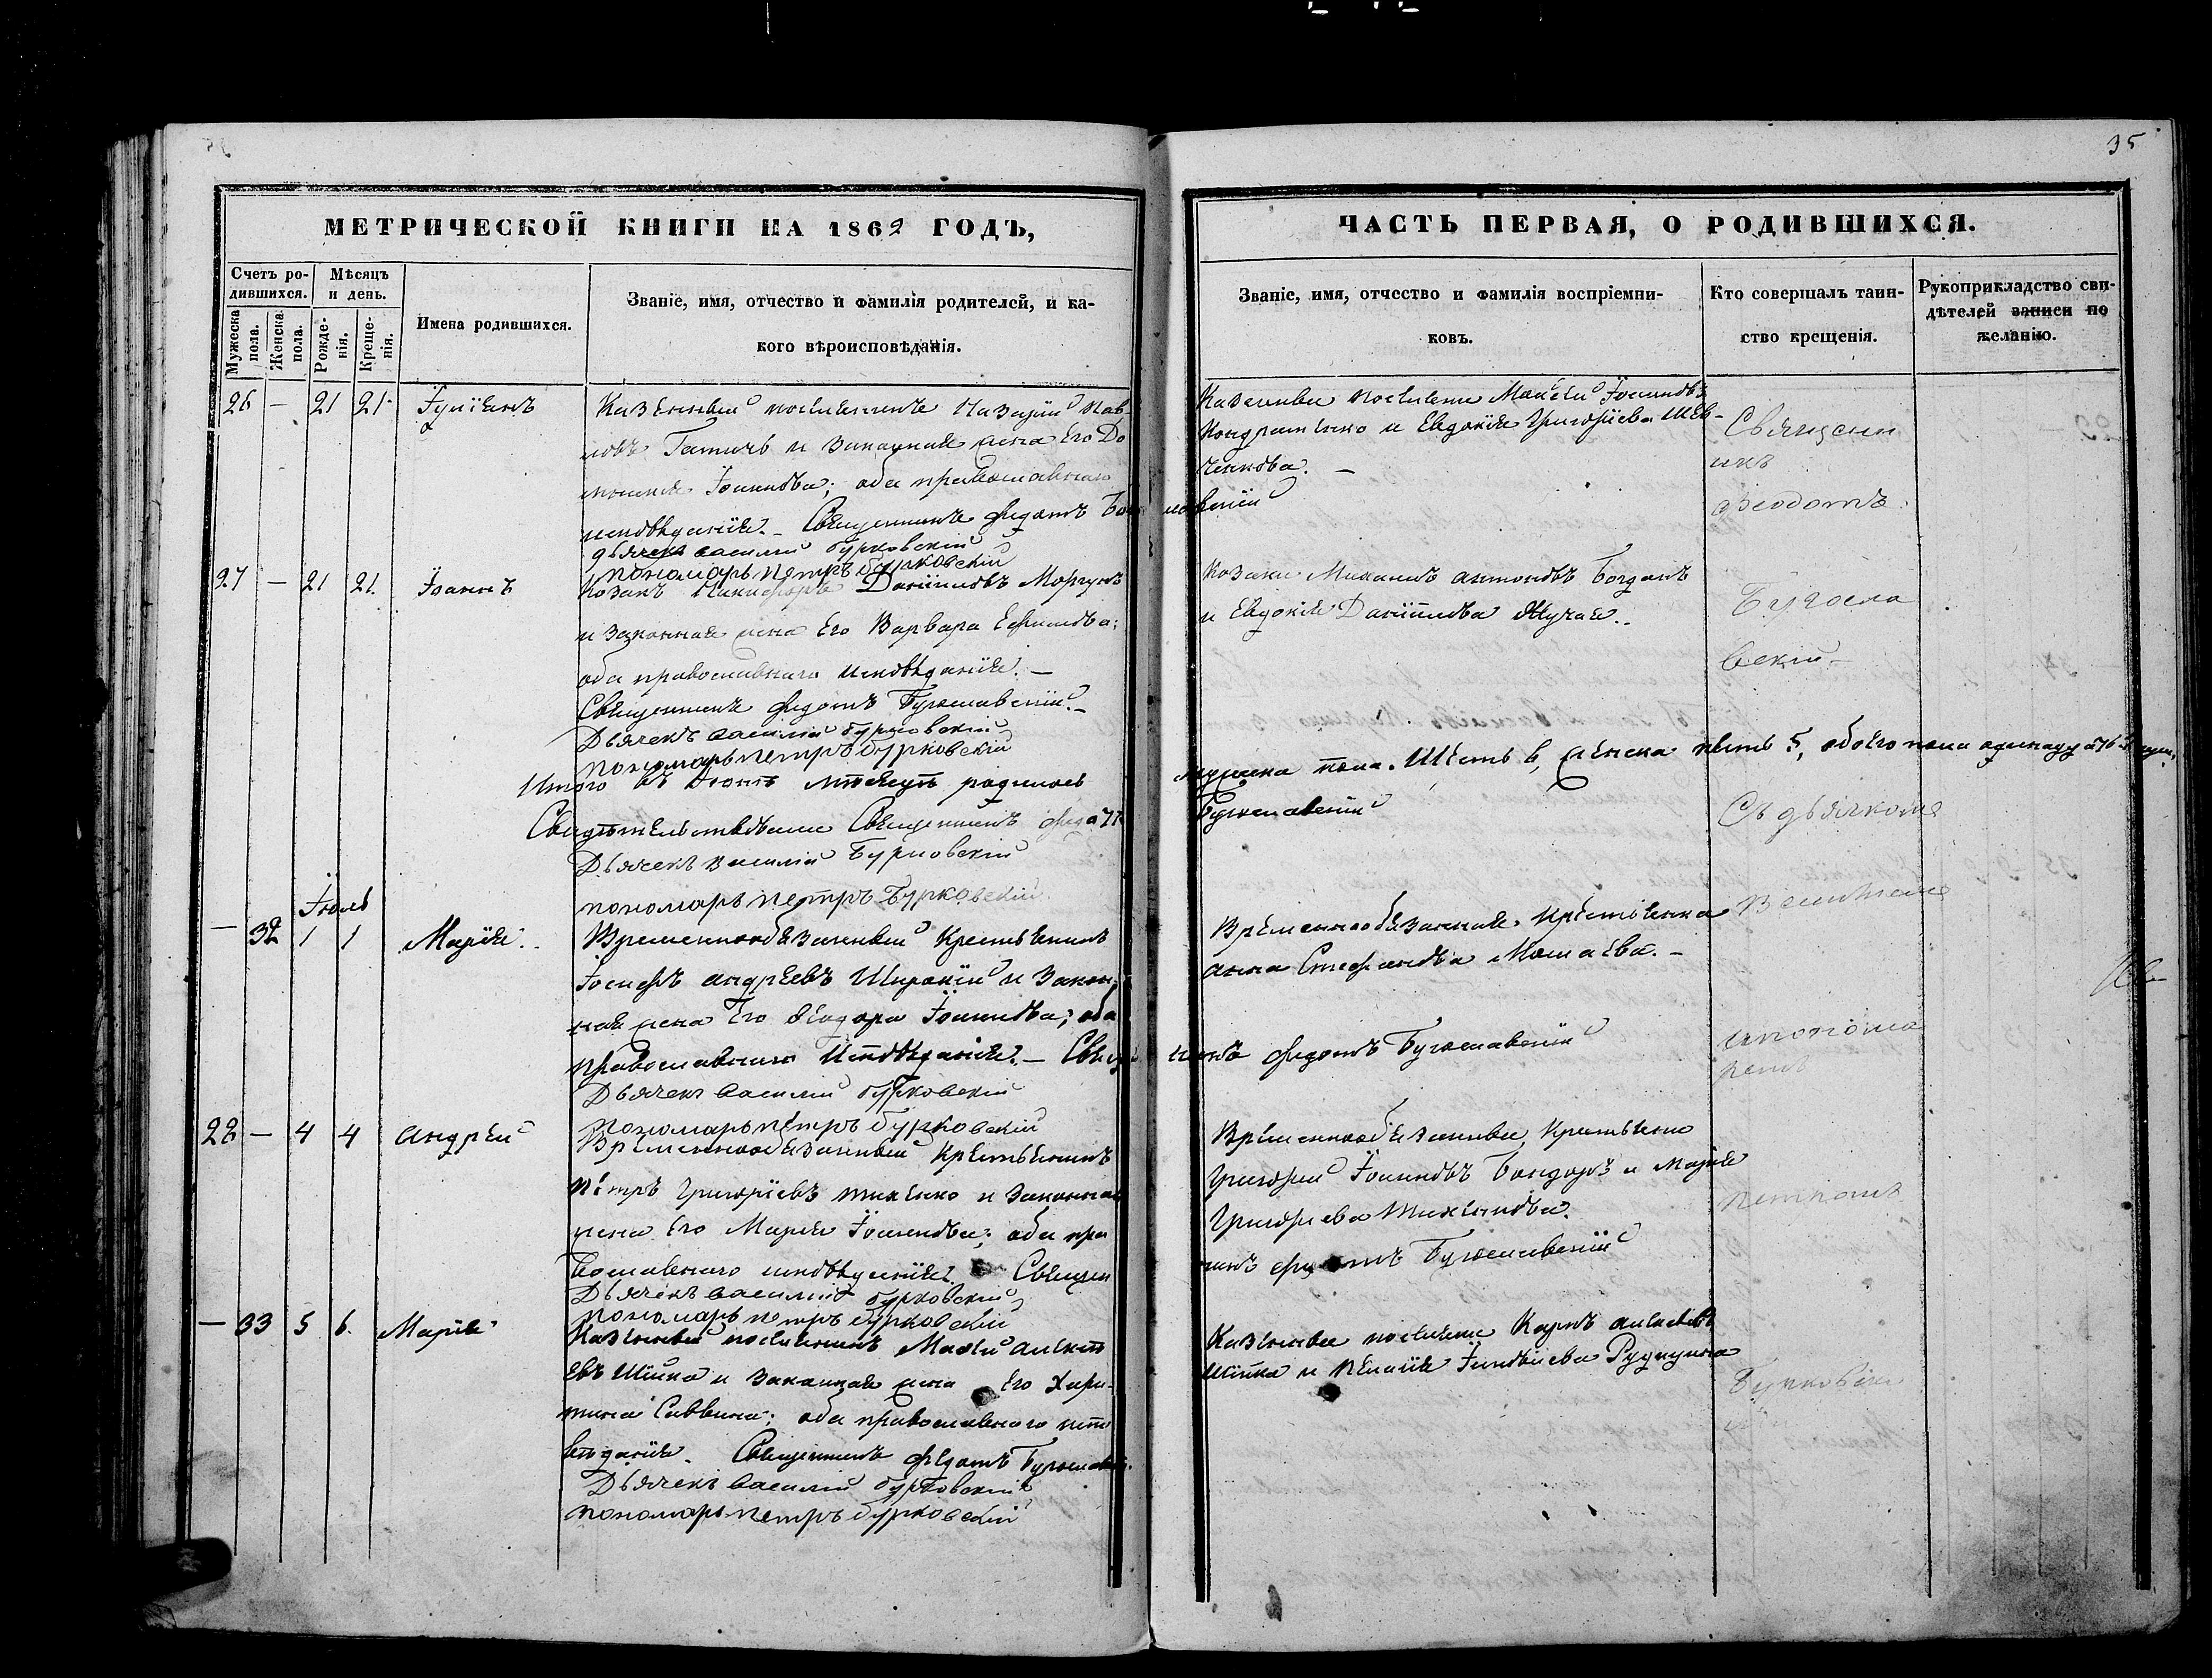 35
МЕТРИЧЕСКОЙ КНИГИ НА 1862 ГОДЪ,
Счетъ ро-
дившихся.
Мѣсяцъ
и день.
Мужеска
пола.
Женска
пола.
Рожде-
нія.
Креще-
нія.
Имена родившихся.
Званіе, имя, отчество и фамилія родителей, и ка-
кого вѣроисповѣданія.
26 — 21 21 Іуліанъ
Казенный поселянинъ Назарій Пав-
ловъ и законная жена его До
Іоаннова; оба православнаго
исповѣданія. — Священникъ Федотъ Богуславскій
дьячекъ Василій Бурковскій
пономарь Петръ Бурковскій
27 — 21 21. Іоаннъ
Козакъ Никифоръ Даніиловъ Моргунъ
и законная жена его Варвара Ефимова;
оба православнаго исповѣданія. —
Священникъ Федотъ Богуславскій. —
Дьячекъ Василій Бурковскій
пономарь Петръ Бурковскій
Итого въ Іюнѣ мѣсяцѣ родилось мужеска пола. Шесть 6, женска пять 5, обоего пола
Свидѣтельствовали Священникъ Федотъ Богуславскій
Дьячекъ Василій Бурковскій
пономарь Петръ Бурковскій
Іюль
— 32 1 1 Марія.
Временнообязанный Крестьянинъ
Іосифъ Андреевъ Широкій и закон-
ная жена его Феодора Іоаннова; оба
православнаго исповѣданія. — Священникъ Федотъ Богуславскій
Дьячекъ Василій Бурковскій
пономарь Петръ Бурковскій
28 — 4 4 Андрей
Временнообязанный Крестьянинъ
Петръ Григоріевъ Тихенко и законная
жена его Марія Іоаннова; оба пра
вославнаго исповѣданія. Священникъ Федотъ Богуславскій
Дьячекъ Василій Бурковскій
пономарь Петръ Бурковскій
— 33 5 6. Марія
Казенный поселянинъ Алексѣ
евъ Шійка и законная жена его Хари-
тина Саввина; оба православнаго испо
вѣданія. Священникъ Федотъ Богуславскій.
Дьячекъ Василій Бурковскій
пономарь Петръ Бурковскій
ЧАСТЬ ПЕРВАЯ, О РОДИВШИХСЯ.
Званіе, имя, отчество и фамилія воспріемни-
ковъ.
Кто совершалъ таин-
ство крещенія.
Рукоприкладство сви-
дѣтелей записи по
желанію.
Казенные поселяне Іоанновъ
Кондратенко и Евдокія Григоріева Шев-
ченкова. —
Козаки Михаилъ Антоновъ Богданъ
и Евдокія Даніилова
Временнообязанная Крестьянка
Анна Стефанова —
Временнообязанные Крестьяне
Григорій Іоанновъ Бондарь и Марія
Григорьева Тихенкова.
Казенные поселяне Карпъ Алексѣевъ
Шійка и Пелагія
Священни
икъ
Феодотъ
Бугосла
вскій
Съ дьячкомъ
Василіемъ
и понома
ремъ
Петромъ
Бурковски